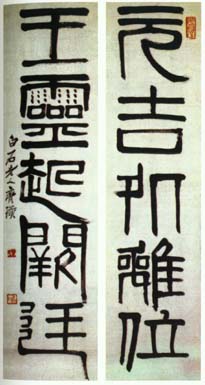 元吉離位
王靈起闕廷
白石老人齊璜